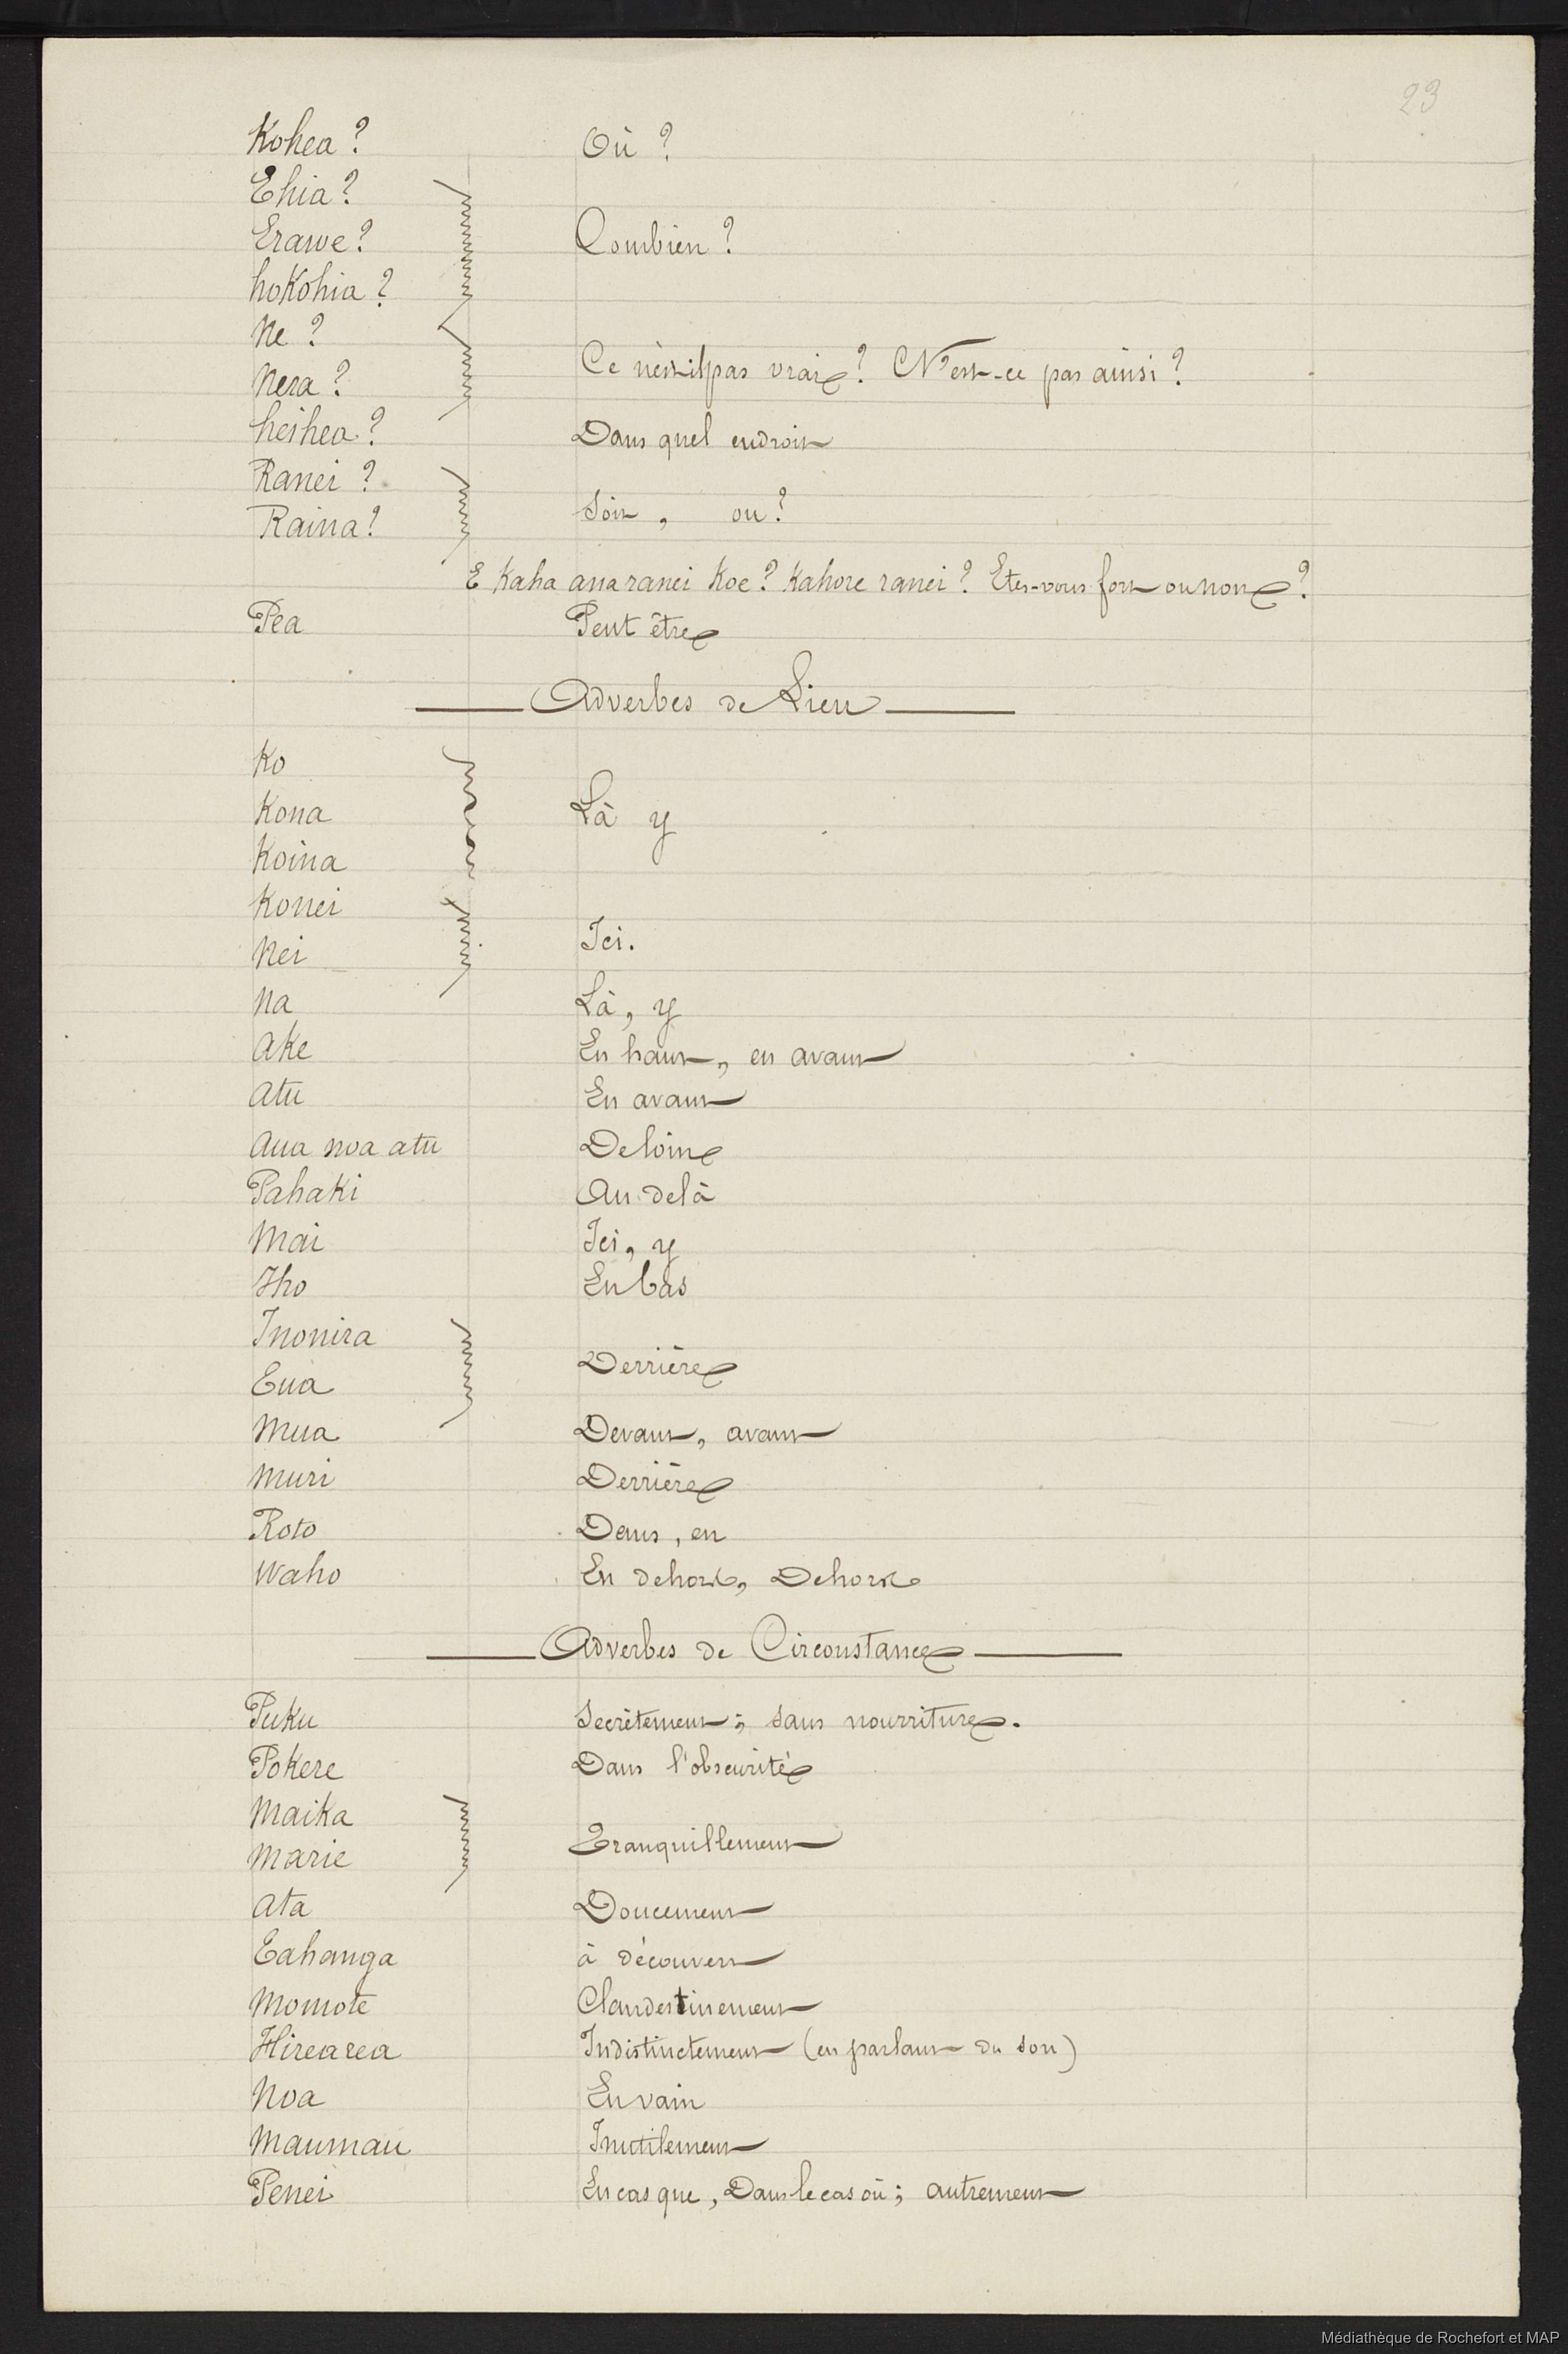 23
Kohea ? Où ?
Ehia ?
Erawe ? Combien ?
hokohia ?
Ne ?
Nera ? Ce n'est-il pas vrai ? N'est-ce pas ainsi ?
heihea ? Dans quel endroit
Ranei ?
Raina ? Soit, ou ?
E Kaha ana ranei Koe ? Kahore ranei ? Etes-vous fort ou non ?
Pea Peut être
Adverbes de Lieu
Ko
Kona Là y
Koina
Konei
Nei Ici.
Na Là, y
Ake En haut, en avant
Atu En avant
Aua noa atu De loin
Pahaki Au delà
Mai Ici, y
Iho En bas
Inonira
Eua Derrière
Mua Devant, avant
Muri Derrière
Roto Dans, en
Waho En dehors, Dehors
Adverbes de Circonstance
Puku Secrètement ; sans nourriture.
Pokere Dans l'obscurité
Maika
Marie Tranquillement
Ata Doucement
Eahanga à découvert
Momote Clandestinement
Hirearea Indistinctement (en parlant du son)
Noa En vain
Maumau Inutilement
Penei En cas que, Dans le cas où ; autrement
Médiathèque de Rochefort et MAP